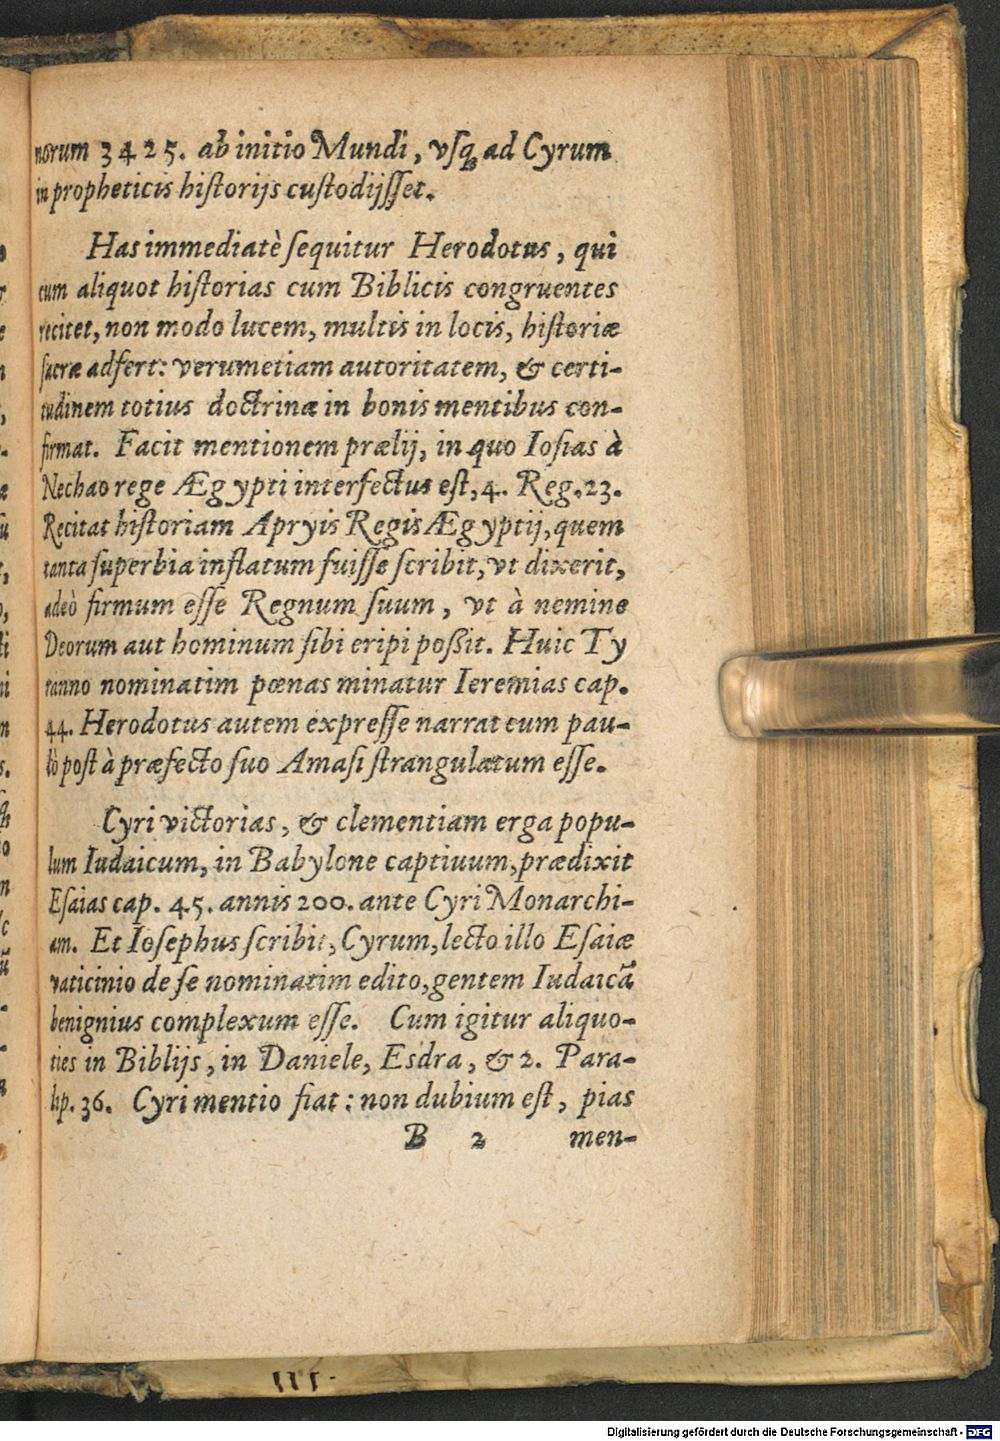 norum 3425. ab initio Mundi, vſq; ad Cyrum
in propheticis hiſtorijs cuſtodijſſet.
Has immediatè ſequitur Herodotus, qui
cum aliquot hiſtorias cum Biblicis congruentes
recitet, non modo lucem, multis in locis, hiſtoriæ
ſacræ adfert: verumetiam autoritatem, & certi-
tudinem totius doctrinæ in bonis mentibus con-
firmat. Facit mentionem prælij, in quo Ioſias à
Nechao rege Ægypti interfectus eſt, 4. Reg. 23.
Recitat hiſtoriam Apryis Regis Ægyptij, quem
tanta ſuperbia inflatum fuiſſe ſcribit, vt dixerit,
adeò firmum eſſe Regnum ſuum, vt à nemine
Deorum aut hominum ſibi eripi poßit. Huic Ty
ranno nominatim pœnas minatur Ieremias cap.
44. Herodotus autem expreſſe narrat eum pau-
lò poſt à præfecto ſuo Amaſi ſtrangulatum eſſe.
Cyri victorias, & clementiam erga popu-
lum Iudaicum, in Babylone captiuum, prædixit
Eſaias cap. 45. annis 200. ante Cyri Monarchi-
am. Et Ioſephus ſcribit, Cyrum, lecto illo Eſaiæ
vaticinio de ſe nominatim edito, gentem Iudaicã
benignius complexum eſſe. Cum igitur aliquo-
ties in Biblijs, in Daniele, Esdra, & 2. Para-
lip. 36. Cyri mentio fiat: non dubium eſt, pias
B 2 men-
Digitalisierung gefördert durch die Deutsche Forschungsgemeinschaft - DFG